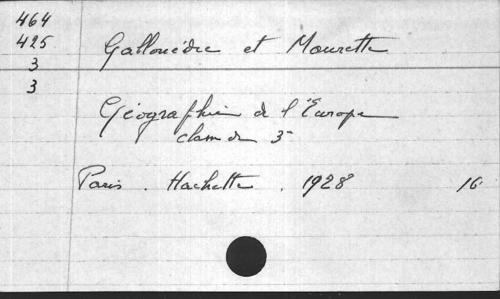 464
425
3
3
Gallouédec et Maurette
Géographie de l'Europe
classe de 3e
Paris. Hachette. 1928 16